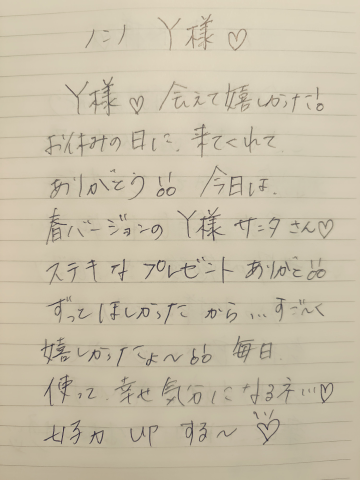 ハニハ Y様♡
Y様♡会えて嬉しかった!!
お休みの日に、来てくれて
ありがとう!! 今日は、
春バージョンの Y様 サンタさん♡
ステキな プレゼント ありがと!!
ずって ほしかった から…すご〜く
嬉しかったよ〜!! 毎日、
使って、幸せ気分になるネ…♡
女子力 UP する〜♡